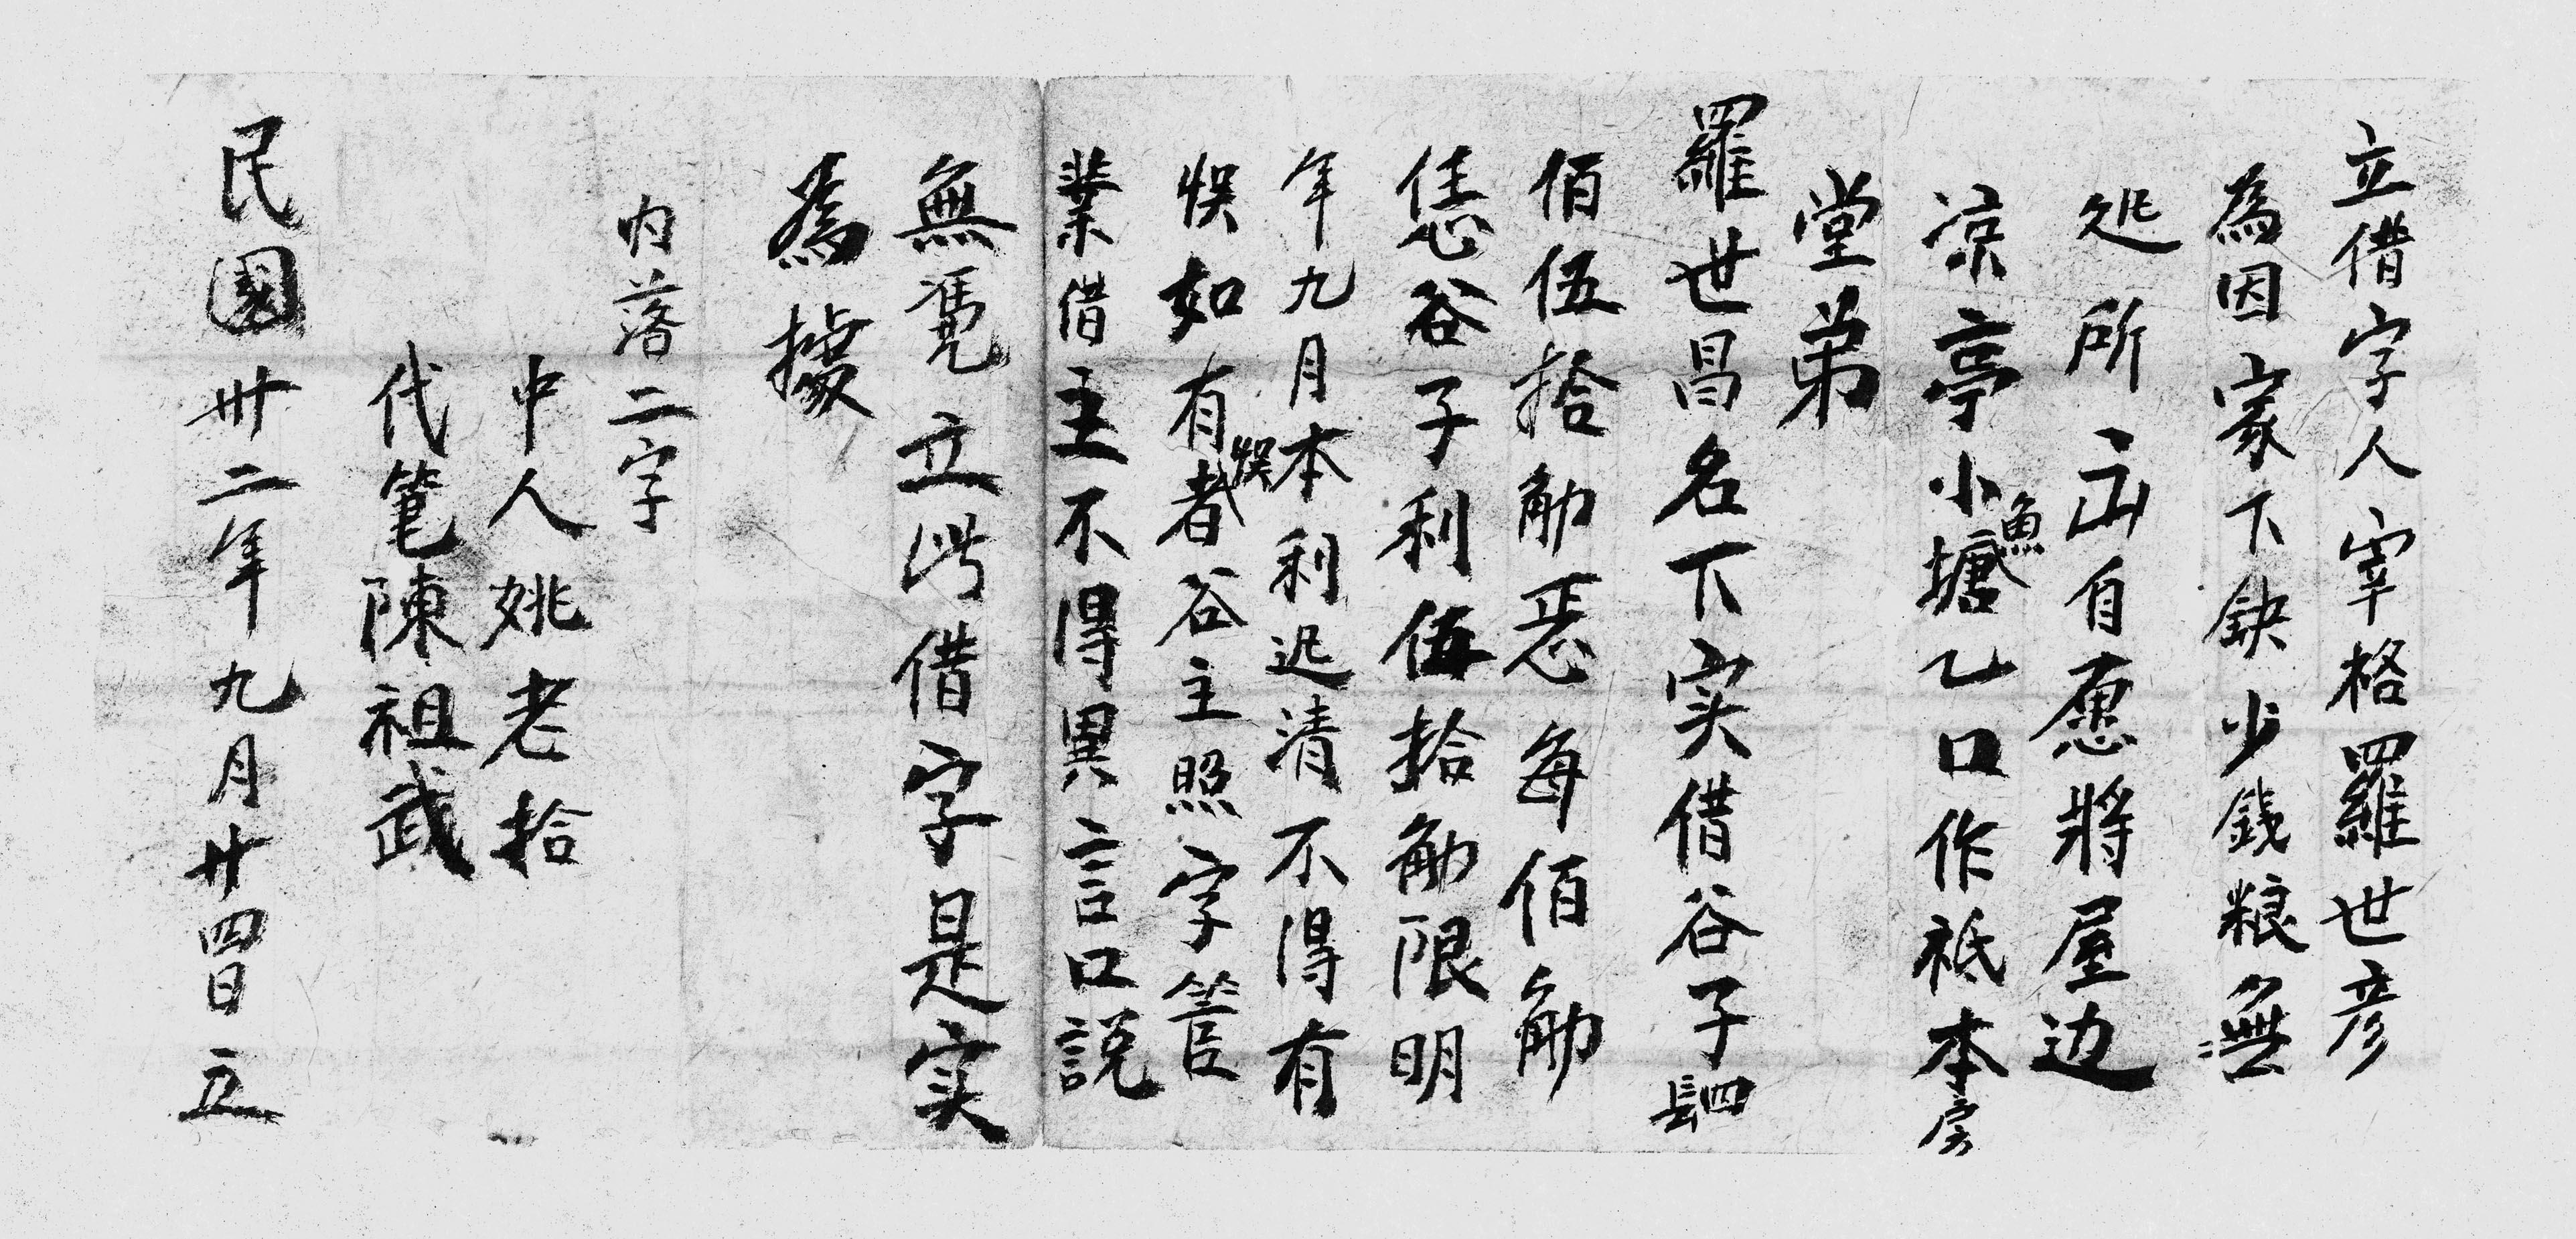 立借字人宰格羅世彥
為因家下缺少錢粮無
処所出自愿將屋边
凉亭小魚塘乙口作祗本房
堂弟
羅世昌名下实借谷子肆
佰伍拾觔恁每佰觔
恁谷子利伍拾觔限明
年九月本利还清不得有
悞如有悞者谷主照字管
業借主不得異言口説
無凭立此借字是实
為據
内落二字
中人姚老拾
代笔陳祖武
民國卅二年九月廿四日立